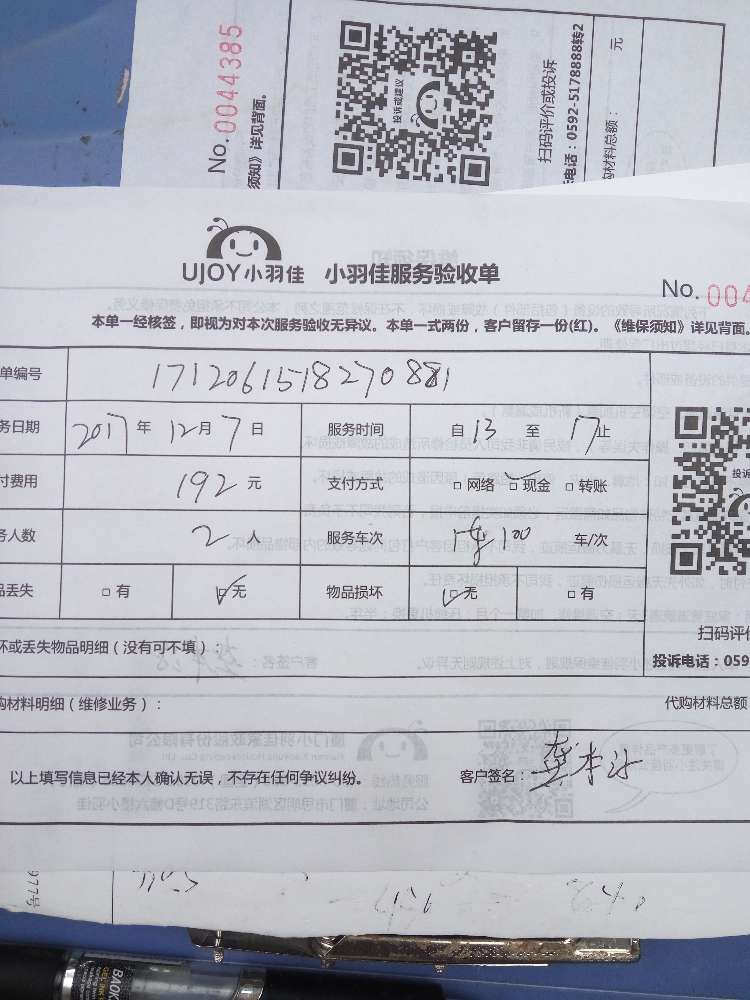 No. 0044385
须知》详见背面。
投诉或建议
扫码评价或投诉
电话：0592-5178888转2
购材料总额：
元
UJOY小羽佳 小羽佳服务验收单
No. 004
本单一经核签，即视为对本次服务验收无异议。本单一式两份，客户留存一份(红)。《维保须知》详见背面。
单编号
务日期 2017 年 12 月 7 日 服务时间 自 13 至 17 止
付费用 192 元 支付方式 □ 网络 □ 现金 □ 转账
务人数 2 人 服务车次 100 车/次
品丢失 □ 有 □ 无 物品损坏 □ 无 □ 有
投诉
扫码评价
坏或丢失物品明细（没有可不填）：
投诉电话：059
购材料明细（维修业务）：
代购材料总额
以上填写信息已经本人确认无误，不存在任何争议纠纷。 客户签名：
977号
BAOK